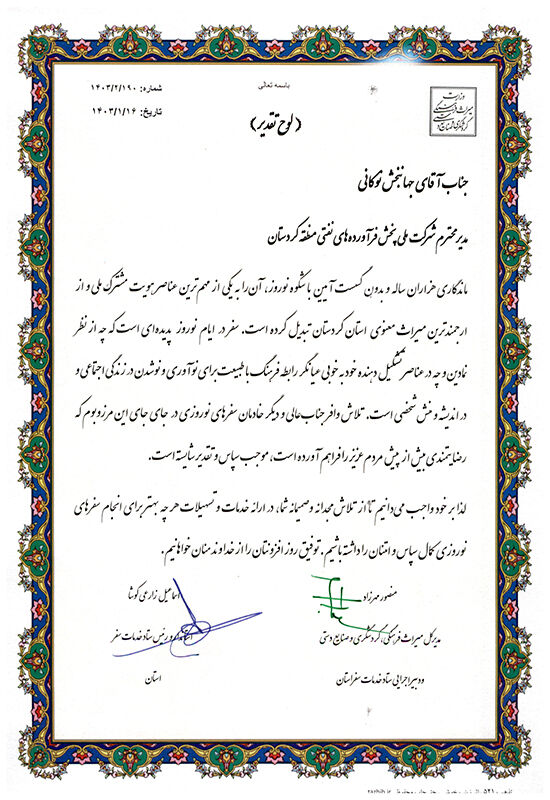 باسمه تعالی
شماره: ۱۴۰۳/۲/۱۹۰
تاریخ: ۱۴۰۳/۱/۱۶
وزارت
میراث فرهنگی
گردشگری و صنایع دستی
(لوح تقدیر)
جناب آقای جهانبخش توکانی
مدیر محترم شرکت ملی پخش فرآورده های نفتی منطقه کردستان
ماندگاری هزاران ساله و بدون گسست آیین باشکوه نوروز، آن را به یکی از مهم ترین عناصر هویت مشترک ملی و از
ارجمندترین میراث معنوی استان کردستان تبدیل کرده است. سفر در ایام نوروز پدیده‌ای است که چه از نظر
نمادین و چه در عناصر تشکیل دهنده خود به خوبی عیانگر رابطه فرهنگ با طبیعت برای نوآوری و نو شدن در زندگی اجتماعی و
در اندیشه و منش شخصی است. تلاش وافر جناب عالی و دیگر خادمان سفرهای نوروزی در جای جای این مرز و بوم که
رضایتمندی بیش از پیش مردم عزیز را فراهم آورده است، موجب سپاس و تقدیر شایسته است.
لذا بر خود واجب می دانیم تا از تلاش مجدانه و صمیمانه شما، در ارائه خدمات و تسهیلات هر چه بهتر برای انجام سفرهای
نوروزی کمال سپاس و امتنان را داشته باشیم. توفیق روز افزونتان را از خداوند منان خواهانیم.
منصور مهرزاد
مدیرکل میراث فرهنگی، گردشگری و صنایع دستی
و دبیر اجرایی ستاد خدمات سفر استان
اسماعیل زارعی کوشا
استاندار و رئیس ستاد خدمات سفر
استان